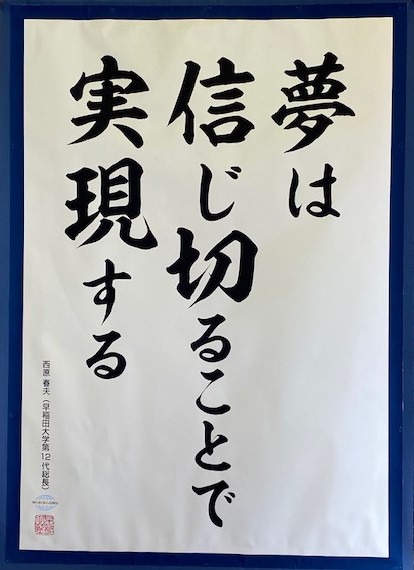 夢は
信じ切ることで
実現する
西原 春夫（早稲田大学第12代総長）